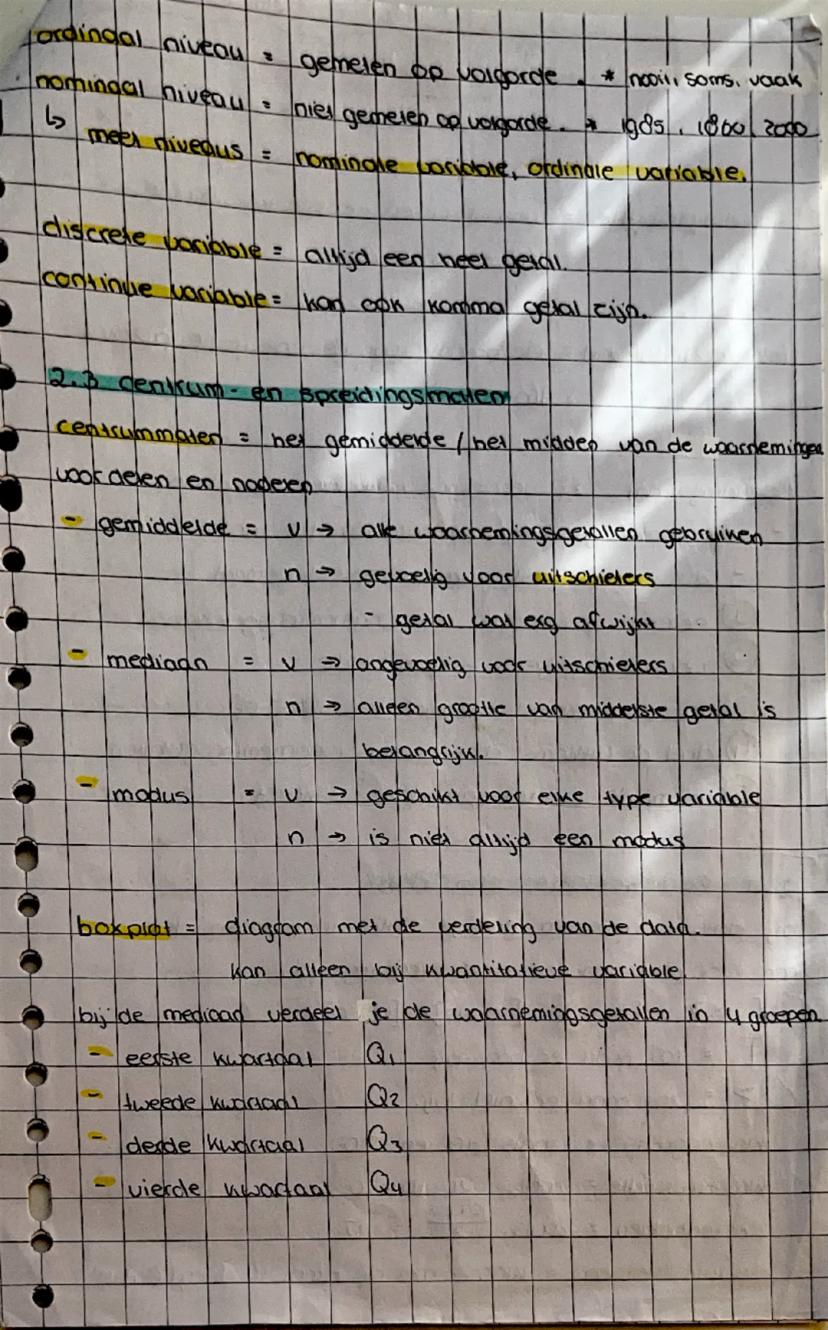 ordinaal niveau = gemeten op volgorde. * nooit, soms, vaak
nominaal niveau = niet gemeten op volgorde. * 1985, 1860, 2000
↳ meet niveaus = nominale variable, ordinale variable.
discrete variable = altijd een heel getal.
continue variable = kan ook komma getal zijn.
2.3 centrum- en spreidingsmaten
centrummaten = het gemiddelde / het midden van de waarnemingen
voordelen en nadelen
- gemiddelde = v → alle waarnemingsgetallen gebruiken
n → gevoelig voor uitschieters
- getal wat erg afwijkt
- mediaan = v → ongevoelig voor uitschieters
n → alleen grootte van middelste getal is
belangrijk.
- modus = v → geschikt voor elke type variable
n → is niet altijd een modus
boxplot = diagram met de verdeling van de data.
kan alleen bij kwantitatieve variable
bij de mediaan verdeel je de waarnemingsgetallen in 4 groepen
- eerste kwartaal Q1
- tweede kwartaal Q2
- derde kwartaal Q3
- vierde kwartaal Q4